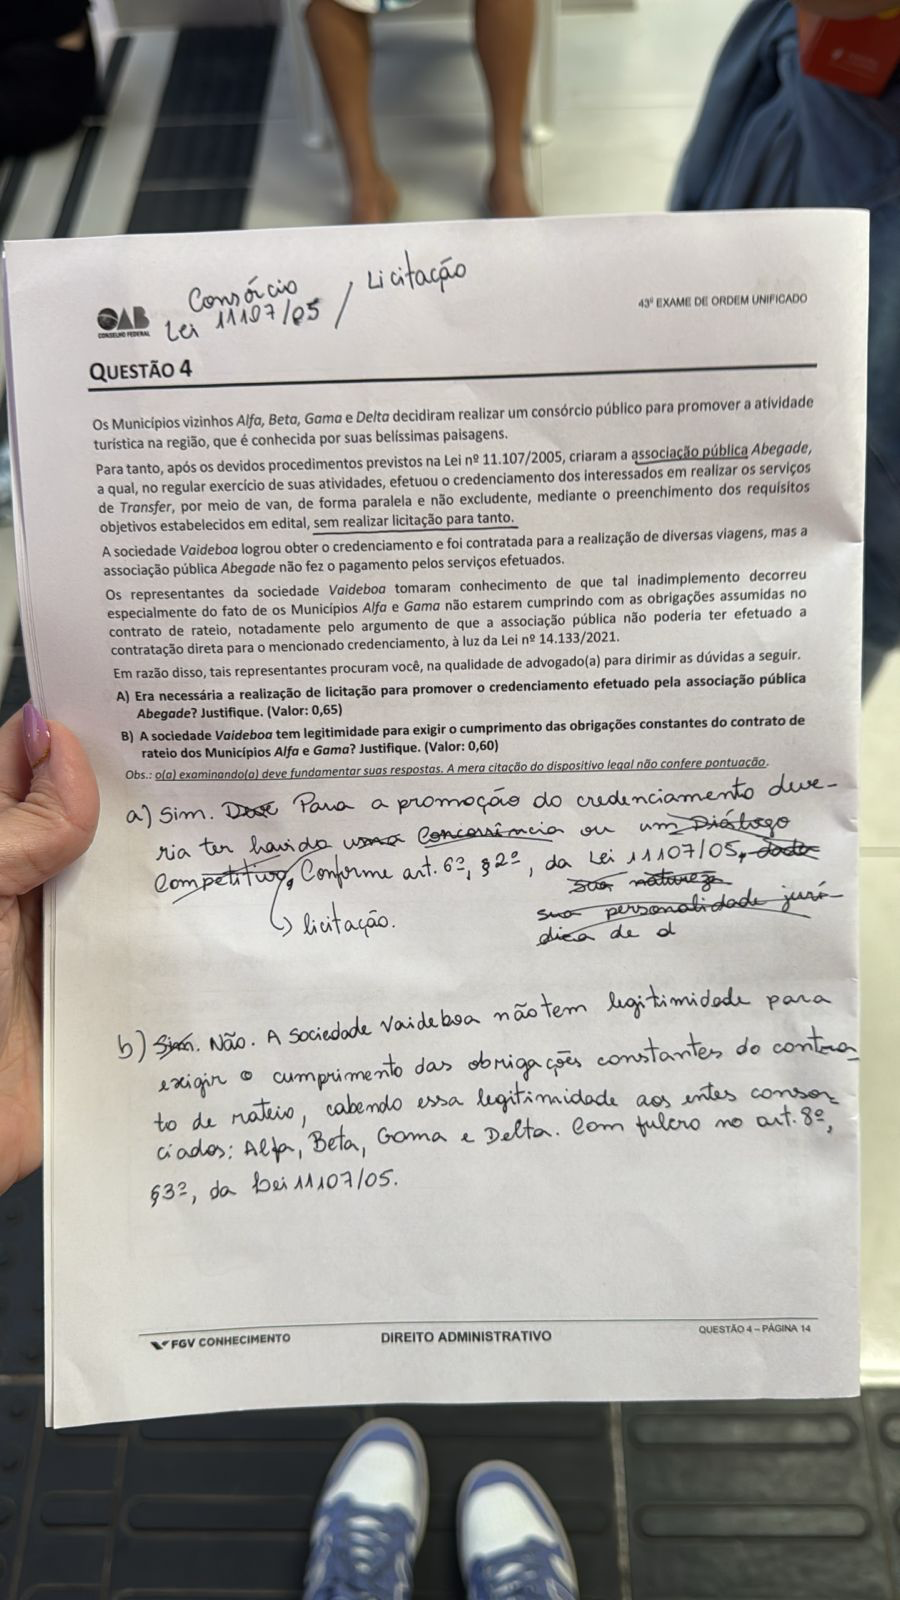 Consórcio / Licitação
Lei 11107/05
OAB
CONSELHO FEDERAL
43º EXAME DE ORDEM UNIFICADO
QUESTÃO 4
Os Municípios vizinhos Alfa, Beta, Gama e Delta decidiram realizar um consórcio público para promover a atividade
turística na região, que é conhecida por suas belíssimas paisagens.
Para tanto, após os devidos procedimentos previstos na Lei nº 11.107/2005, criaram a associação pública Abegade,
a qual, no regular exercício de suas atividades, efetuou o credenciamento dos interessados em realizar os serviços
de Transfer, por meio de van, de forma paralela e não excludente, mediante o preenchimento dos requisitos
objetivos estabelecidos em edital, sem realizar licitação para tanto.
A sociedade Vaideboa logrou obter o credenciamento e foi contratada para a realização de diversas viagens, mas a
associação pública Abegade não fez o pagamento pelos serviços efetuados.
Os representantes da sociedade Vaideboa tomaram conhecimento de que tal inadimplemento decorreu
especialmente do fato de os Municípios Alfa e Gama não estarem cumprindo com as obrigações assumidas no
contrato de rateio, notadamente pelo argumento de que a associação pública não poderia ter efetuado a
contratação direta para o mencionado credenciamento, à luz da Lei nº 14.133/2021.
Em razão disso, tais representantes procuram você, na qualidade de advogado(a) para dirimir as dúvidas a seguir.
A) Era necessária a realização de licitação para promover o credenciamento efetuado pela associação pública
Abegade? Justifique. (Valor: 0,65)
B) A sociedade Vaideboa tem legitimidade para exigir o cumprimento das obrigações constantes do contrato de
rateio dos Municípios Alfa e Gama? Justifique. (Valor: 0,60)
Obs.: o(a) examinando(a) deve fundamentar suas respostas. A mera citação do dispositivo legal não confere pontuação.
a) Sim. Para a promoção do credenciamento deve-
ria ter havido uma Concorrência ou um Diálogo
Competitivo, Conforme art. 6º, §2º, da Lei 11107/05, dada
sua natureza
sua personalidade jurí-
licitação.
dica de d
b) Sim. Não. A Sociedade Vaideboa não tem legitimidade para
exigir o cumprimento das obrigações constantes do contra
to de rateio, cabendo essa legitimidade aos entes consor-
ciados: Alfa, Beta, Gama e Delta. Com fulcro no art. 8º,
§3º, da Lei 11107/05.
FGV CONHECIMENTO
DIREITO ADMINISTRATIVO
QUESTÃO 4 – PÁGINA 14